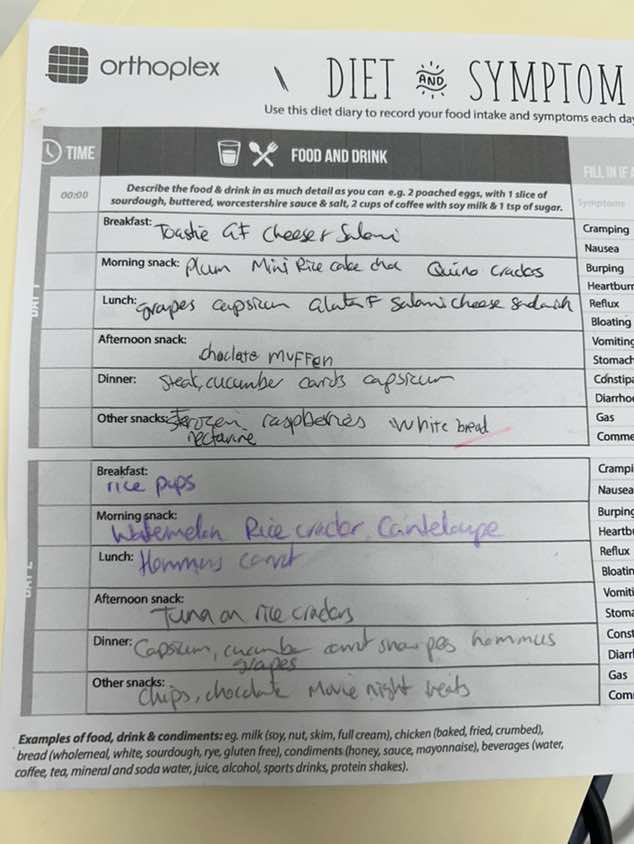 orthoplex
DIET AND SYMPTOM
Use this diet diary to record your food intake and symptoms each da
TIME
FOOD AND DRINK
FILL IN IF A
00:00
Describe the food & drink in as much detail as you can e.g. 2 poached eggs, with 1 slice of
sourdough, buttered, worcestershire sauce & salt, 2 cups of coffee with soy milk & 1 tsp of sugar.
Symptoms
Breakfast: Toastie GF cheese & Salami
Cramping
Nausea
Morning snack: plum Mini Rice cake choc Quino crackers
Burping
Heartburn
Lunch: grapes capsicum Salami cheese
Reflux
Bloating
Afternoon snack:
choclate Muffen
Vomiting
Stomach
Dinner: Steak, cucumber capsicum
Constipa
Diarrhoe
Other snacks: frozen raspberries White bread
nectarine
Gas
Comme
Breakfast:
rice pups
Crampi
Nausea
Morning snack:
Watermelon Rice Canteloupe
Burping
Heartb
Lunch: Hommus
Reflux
Bloatin
Afternoon snack:
Tuna on rice
Vomiti
Stoma
Dinner: Capsicum, cucumber hommus
grapes
Const
Diarrh
Other snacks:
Chips, chocolate Movie night treats
Gas
Com
Examples of food, drink & condiments: eg. milk (soy, nut, skim, full cream), chicken (baked, fried, crumbed),
bread (wholemeal, white, sourdough, rye, gluten free), condiments (honey, sauce, mayonnaise), beverages (water,
coffee, tea, mineral and soda water, juice, alcohol, sports drinks, protein shakes).